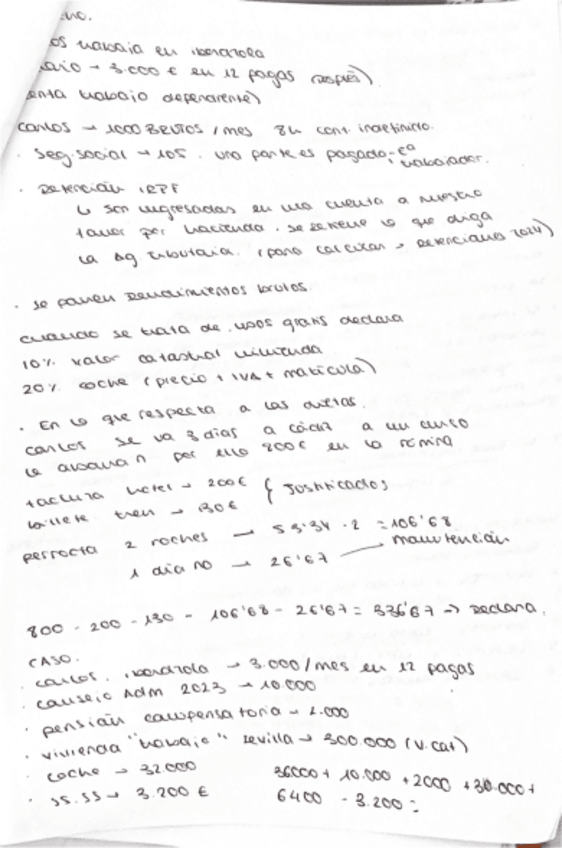 os trabaja en iberdrola
ario → 3.000 € en 12 pagas
enta trabajo dependiente)
Carlos → 1000 BRUTOS / mes 8h cont. indefinido.
· Seg. social → 105. una parte es pagado: eª trabajador.
· Retención IRPF
↳ son ingresadas en una cuenta a nuestro
favor por hacienda. se retiene lo que diga
la Ag tributaria. (para calcular → Retenciones 2024)
· se ponen Rendimientos brutos.
cuando se trata de usos gratis declara
10% valor catastral vivienda
20% coche (precio + IVA + matrícula)
· En lo que respecta a las dietas.
Carlos se va 3 días a cádiz a un curso
le abonan por ello 800€ en la nómina
factura hotel → 200€ { Justificados
billete tren → 130€
pernocta 2 noches → 53'34 · 2 = 106'68
1 dia no → 26'67 manutención
800 - 200 - 130 - 106'68 - 26'67 = 336'67 → Declara.
CASO.
· Carlos. iberdrola → 3.000/mes en 12 pagas
· consejo Adm 2023 → 10.000
· pensión compensatoria → 2.000
· vivienda "trabajo" sevilla → 300.000 (v.cat)
· coche → 32.000 36000 + 10.000 + 2000 + 30.000 +
· ss.ss → 3.200 € 6400 - 3.200 =